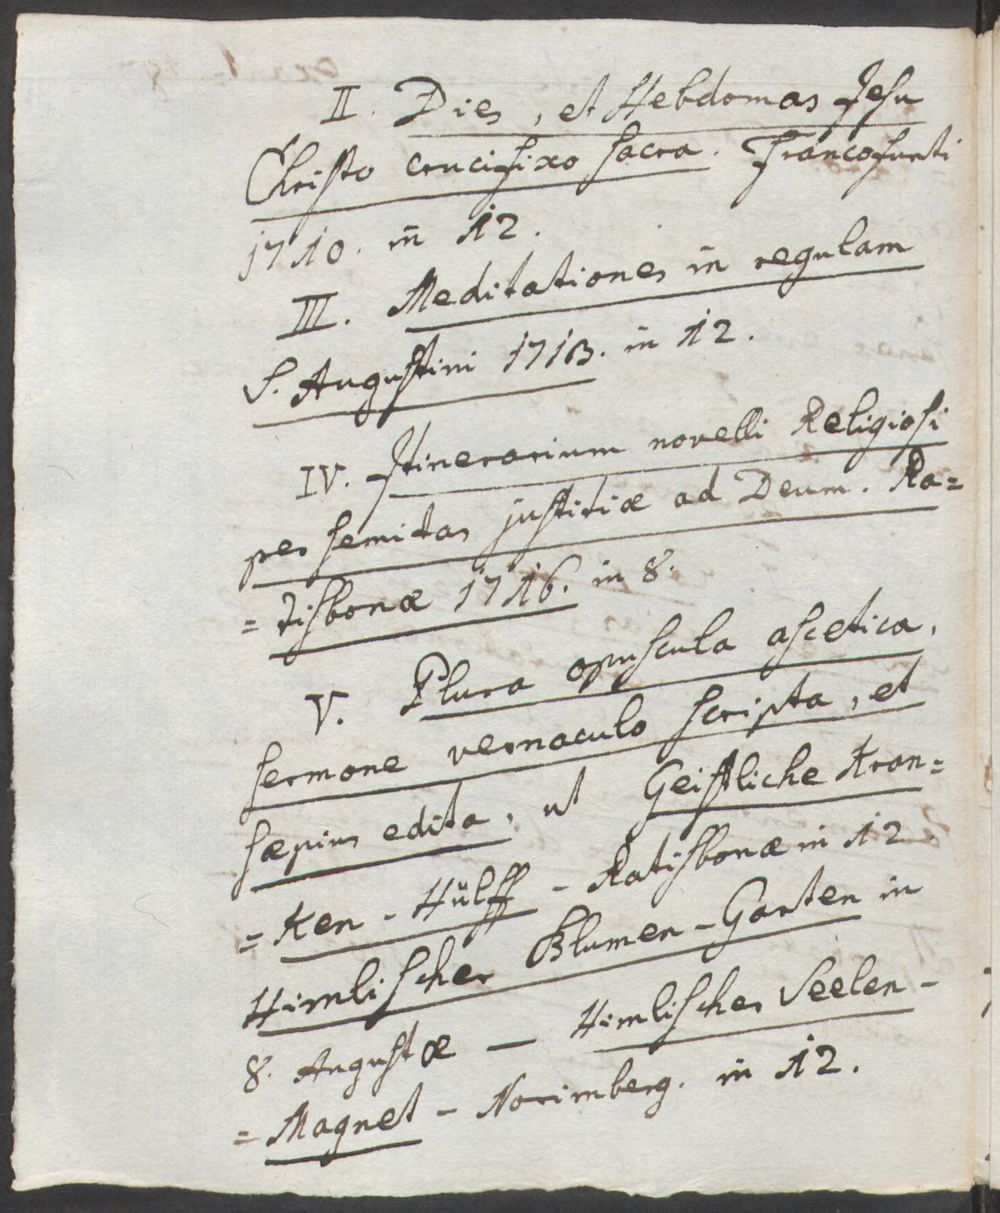 II. Dies, et Hebdomas Jesu
Christo crucifixo sacra. Francofurti
1710. in 12.
III. Meditationes in regulam
S. Augustini 1713. in 12.
IV. Itinerarium novelli Religiosi
per semitas justitiæ ad Deum. Ra=
=tisbonæ 1716. in 8.
V. Plura opuscula ascetica,
sermone vernaculo scripta, et
sæpius edita, ut Geistliche Kran=
=Ken-Hülff - Ratisbonæ in 12
Himlischer Blumen-Garten in
8. Augustæ — Himlischer Seelen-
=Magnet - Norimberg. in 12.